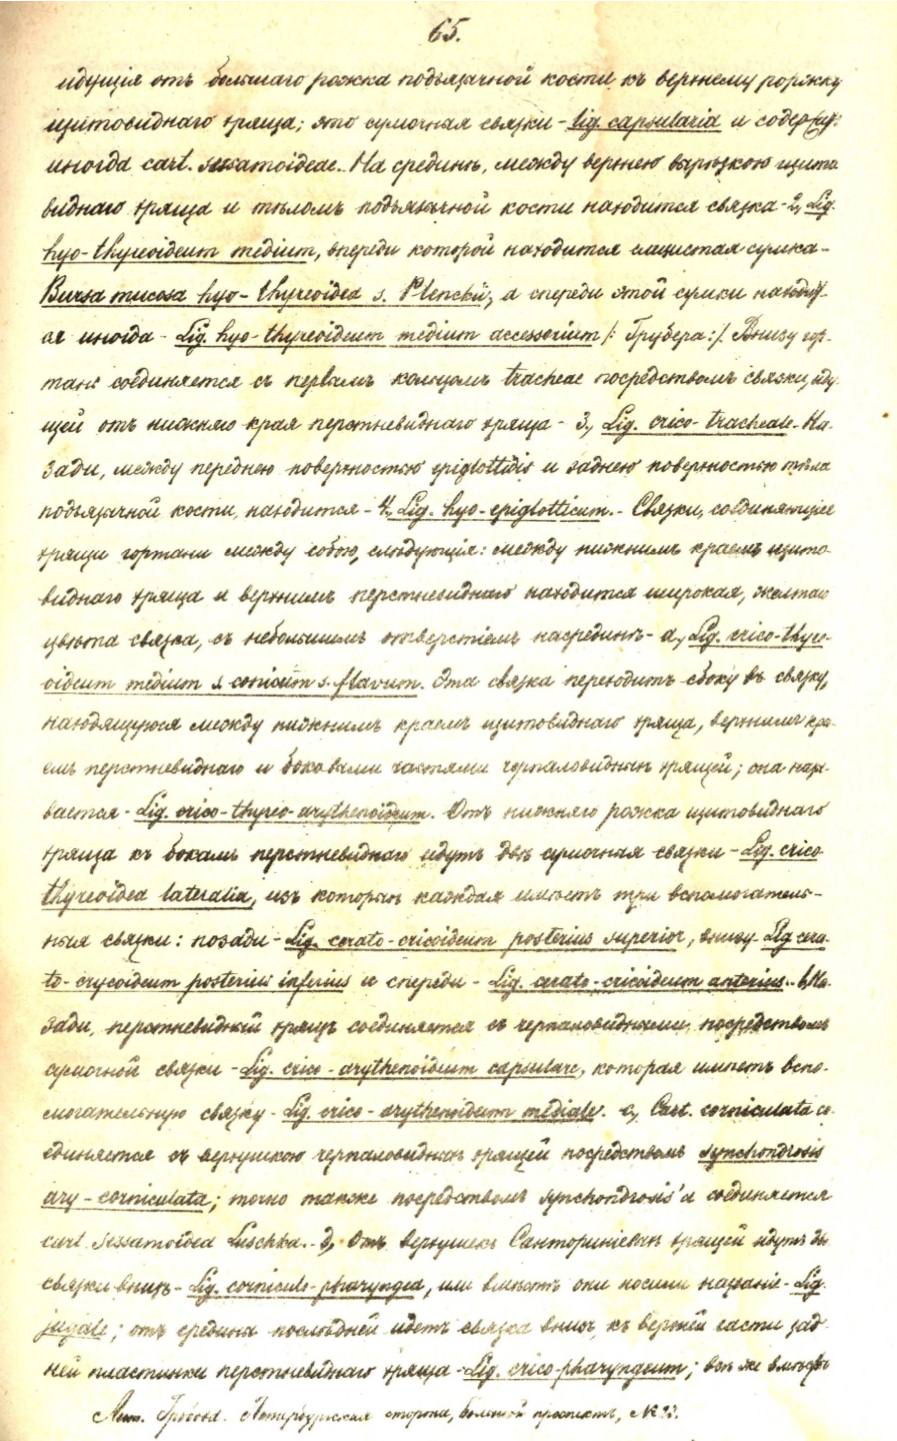 65.
идущія отъ большаго рожка подъязычной кости къ верхнему рожку
щитовиднаго хряща; это сумочная связки - lig. capsularia и содержу:
иногда cart. sessamoideae. На срединѣ, между верхнею вырѣзкою щито
виднаго хряща и тѣломъ подъязычной кости находится связка - 2, Lig.
hyo-thyreoideum medium, впереди которой находится слизистая сумка -
Bursa mucosa hyo-thyreoidea s. Plenckii, а спереди этой сумки находит-
ся иногда - Lig. hyo-thyreoideum medium accessorium /: Грубера:/. Внизу гор-
тань соединяется съ первымъ кольцомъ tracheae посредствомъ связки, иду
щей отъ нижняго края перстневиднаго хряща - 3, Lig. crico-tracheale. На-
зади, между переднею поверхностью epiglottidis и заднею поверхностью тѣла
подъязычной кости, находится - 4, Lig. hyo-epiglotticum. - Связки, соединяющіе
хрящи гортани между собою, слѣдующія: между нижнимъ краемъ щито-
виднаго хряща и верхнимъ перстневиднаго находится широкая, желтаго
цвѣта связка, съ небольшимъ отверстіемъ насрединѣ - a, Lig. crico-thyre-
oideum medium s. conicum s. flavum. Эта связка переходитъ сбоку въ связку,
находящуюся между нижнимъ краемъ щитовиднаго хряща, верхнимъ кра-
емъ перстневиднаго и боковыми частями черпаловидныхъ хрящей; она назы-
вается - Lig. crico-thyreo-arythenoideum. Отъ нижняго рожка щитовиднаго
хряща къ бокамъ перстневиднаго идутъ двѣ сумочныя связки - Lig. crico
thyreoidea lateralia, изъ которыхъ каждая имѣетъ три вспомогатель-
ныя связки: позади - Lig. cerato-cricoideum posterius superior, внизу - Lig cera-
to-crycoideum posterius inferius и спереди - Lig. cerato-cricoideum anterius. - b, На-
зади, перстневидный хрящъ соединяется съ черпаловидными, посредствомъ
сумочной связки - Lig. crico-arythenoideum capsulare, которая имѣетъ вспо-
могательную связку - Lig. crico-arythenoideum mediale. c, Cart. corniculata со-
единяется съ верхушкою черпаловидныхъ хрящей посредствомъ synchondrosis
ary-corniculata; точно также посредствомъ synchondrosis'а соединяется
cart. sessamoidea Luschka. - d, Отъ верхушекъ Санториніевыхъ хрящей идутъ двѣ
связки внизъ - Lig. corniculo-pharyngea, или вмѣстѣ они носили названіе - Lig.
jugale; отъ средины послѣдней идетъ связка внизъ, къ верхней части зад-
ней пластинки перстневиднаго хряща - Lig. crico-pharyngeum; всѣ же вмѣстѣ
Лит. Гробова. Петербургская сторона, большой проспектъ, №